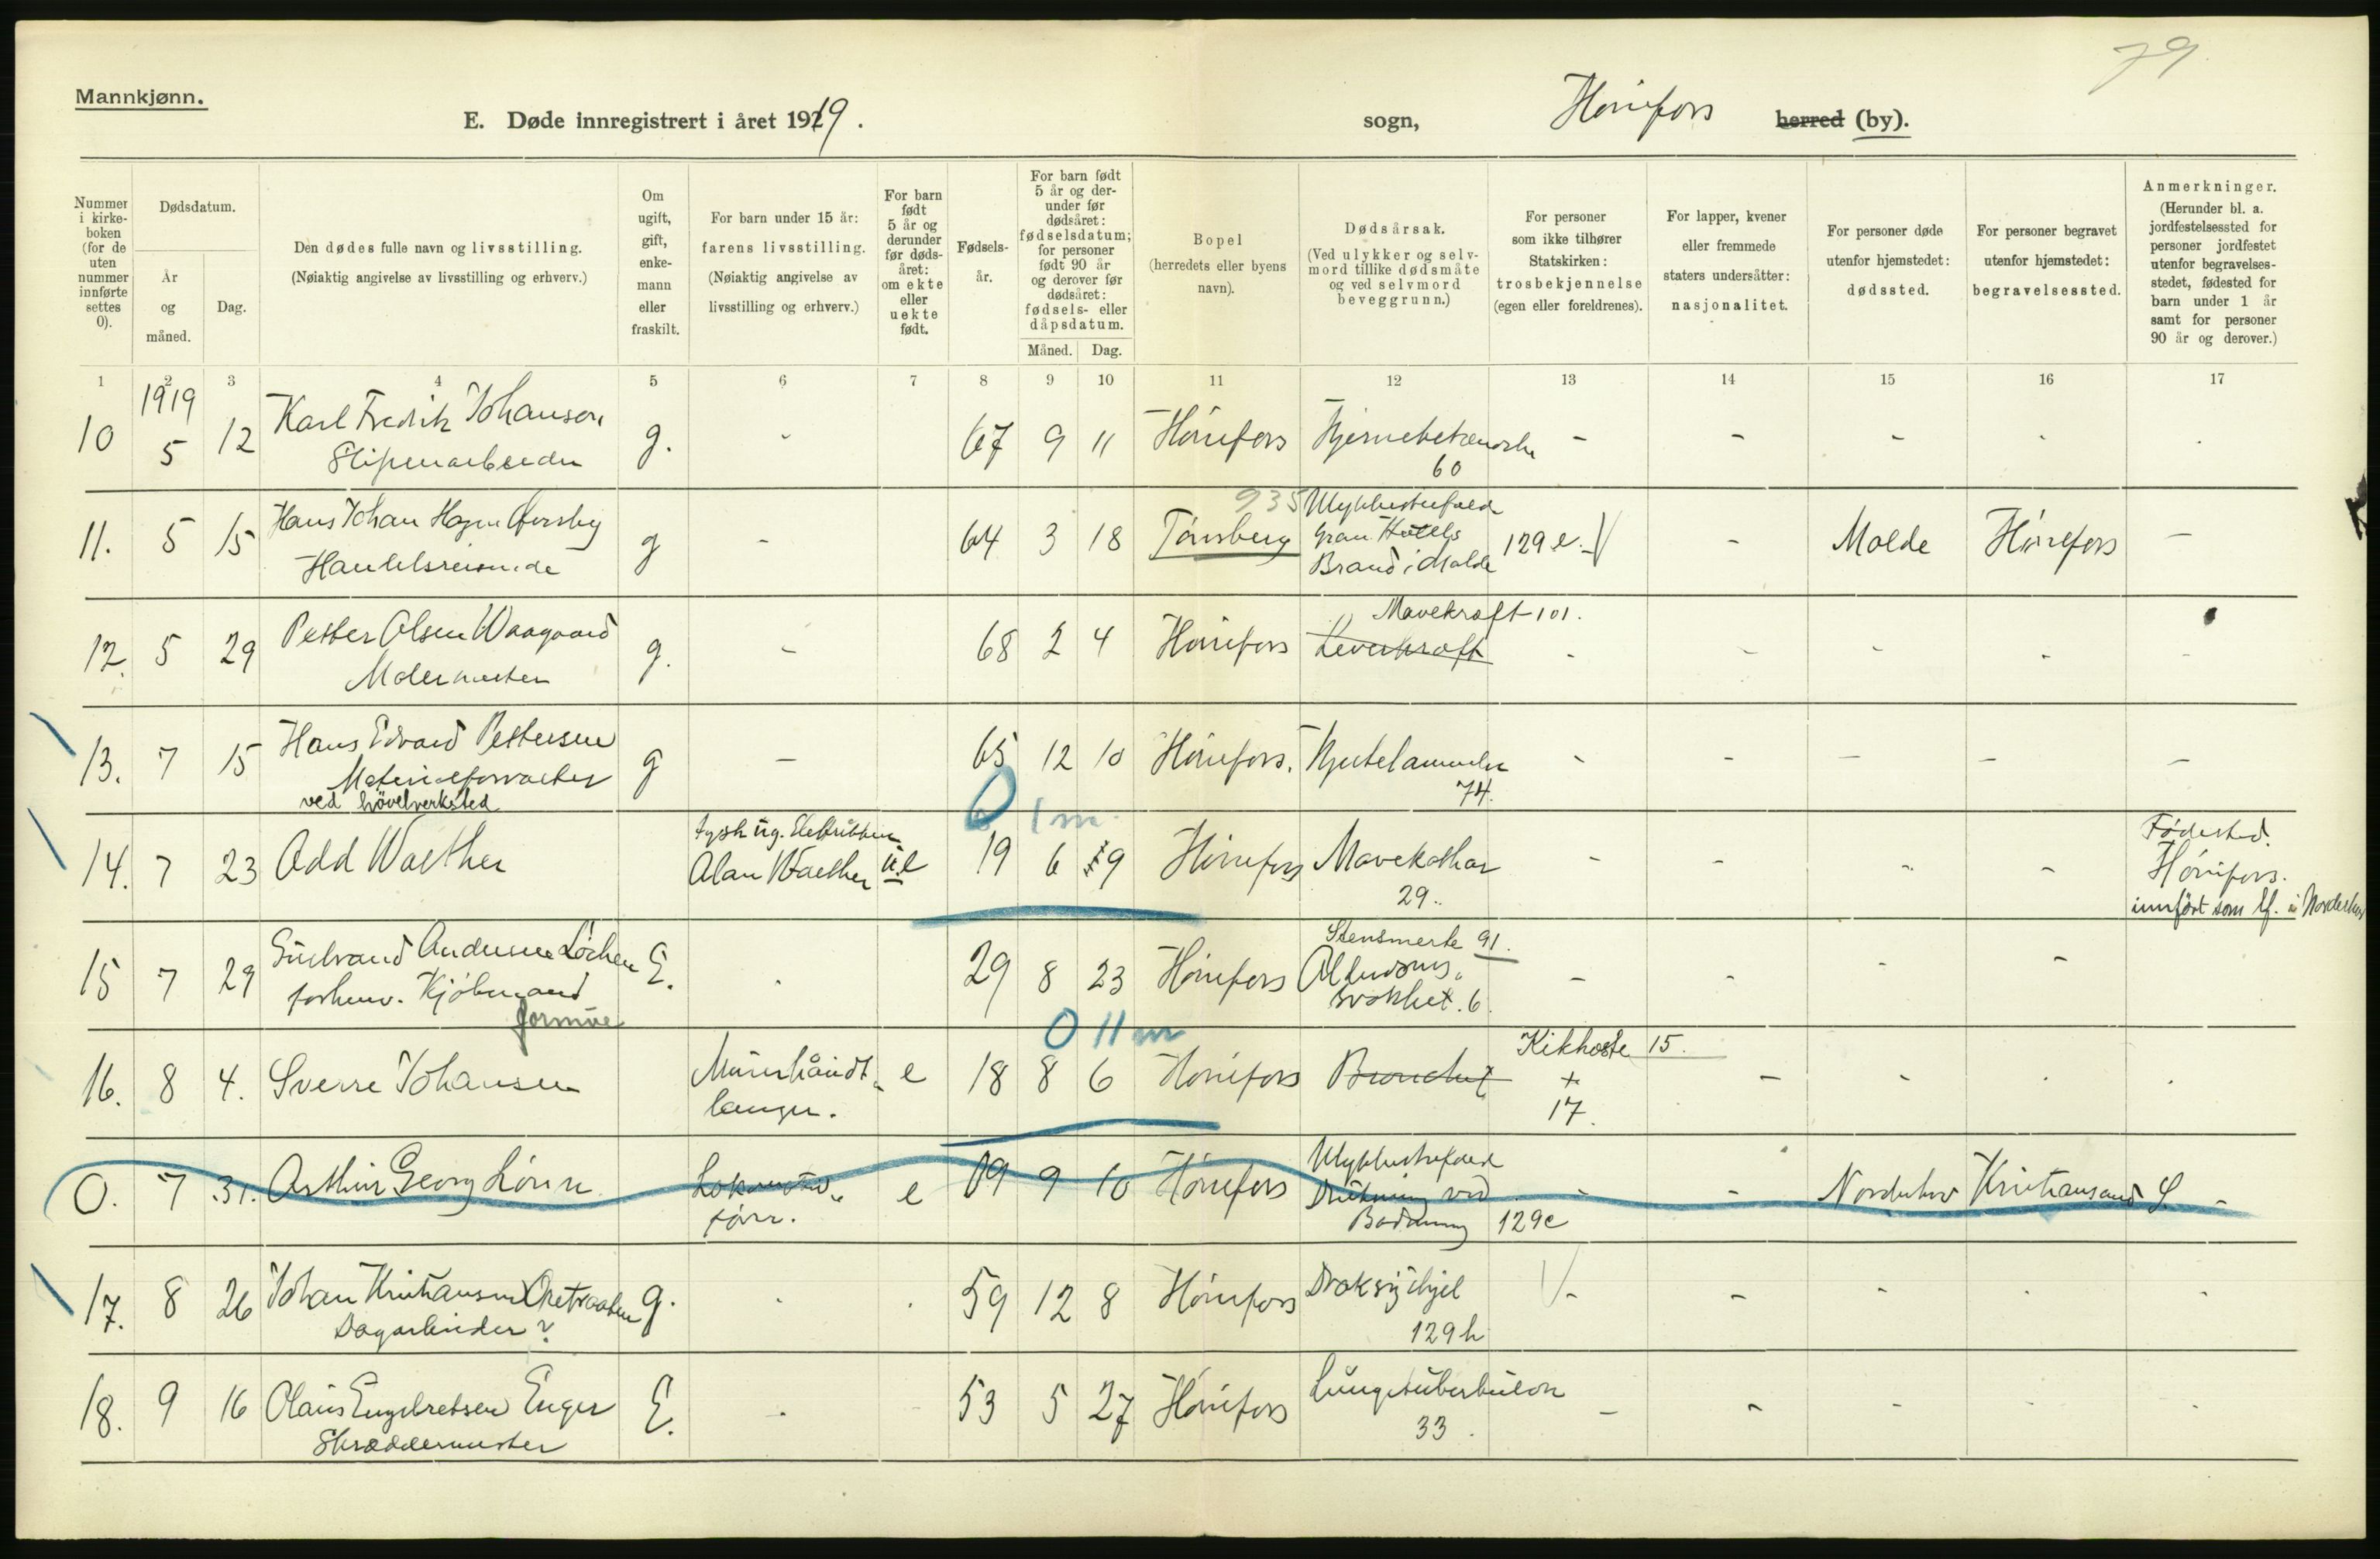 79
Mannkjønn.
E. Døde innregistrert i året 1919.
sogn,
Hönefoss
herred (by).
Nummer i kirkeboken (for de uten nummer innførte settes 0).
Dødsdatum.
År og måned.
Dag.
Den dødes fulle navn og livsstilling.
(Nøiaktig angivelse av livsstilling og erhverv.)
Om ugift, gift, enkemann eller fraskilt.
For barn under 15 år:
farens livsstilling.
(Nøiaktig angivelse av livsstilling og erhverv.)
For barn født 5 år og derunder før dødsåret: om ekte eller uekte født.
Fødselsår.
For barn født 5 år og derunder før dødsåret: fødselsdatum; for personer født 90 år og derover før dødsåret: fødsels- eller dåpsdatum.
Måned.
Dag.
Bopel
(herredets eller byens navn).
Dødsårsak.
(Ved ulykker og selvmord tillike dødsmåte og ved selvmord beveggrunn.)
For personer som ikke tilhører Statskirken: trosbekjennelse (egen eller foreldrenes).
For lapper, kvener eller fremmede staters undersåtter: nasjonalitet.
For personer døde utenfor hjemstedet: dødssted.
For personer begravet utenfor hjemstedet: begravelsessted.
Anmerkninger.
(Herunder bl. a. jordfestelsessted for personer jordfestet utenfor begravelsesstedet, fødested for barn under 1 år samt for personer 90 år og derover.)
1 2 3 4 5 6 7 8 9 10 11 12 13 14 15 16 17
1919
10 5 12 Karl Fredrik Johansen g. - 67 9 11 Hönefoss - - - - -
Sliperiarbeider
60
11. 5 15 Hans Johan Hagen g - 64 3 18 Tønsberg 935 Ulykkestilfæld 129 e. - Molde Hönefoss -
Handelsreisende
Gran Hotels
Brand i Molde
12. 5 29 Petter Olsen Waagaard g. - 68 2 4 Hönefoss Mavekræft 101. - - - - -
Malermester
Leverkræft
13. 7 15 Hans Edvard Pettersen g - 65 12 10 Hönefoss. - - - - -
Materialforvalter
ved hövelverksted
74.
0 1 m.
14. 7 23 Odd Walther tysk ug. u.e 19 6 9 Hönefoss Mavekathar - - - - Födested.
Alan Walther
29.
Hönefoss.
innført som lf. i Norderhov
15 7 29 Gudbrand Andersen Löchen E. - 29 8 23 Hönefoss Stensmerte 91. - - - -
forhenv. Kjöbmand
formue
Alderdoms
svakhet. 6.
0 11 m
16. 8 4. Sverre Johansen Murerhåndt e 18 8 6 Hönefoss Bronchit Kikhoste 15. - - - -
langer.
+
17.
0. 7 31. Arthur Georg Lönn Lokomotiv e 09 9 10 Hönefoss Ulykkestilfæld - - Norderhov Kristiansand S. -
förer.
Drukning ved
Badning 129c
17. 8 26 Johan Kristiansen g. - 59 12 8 Hönefoss Drak sig ihjel - - - - -
Dagarbeider ?
129 h
18. 9 16 Olaus Engebretsen Enger E. - 53 5 27 Hönefoss Lungetuberkulose - - - - -
Skræddermester
33.